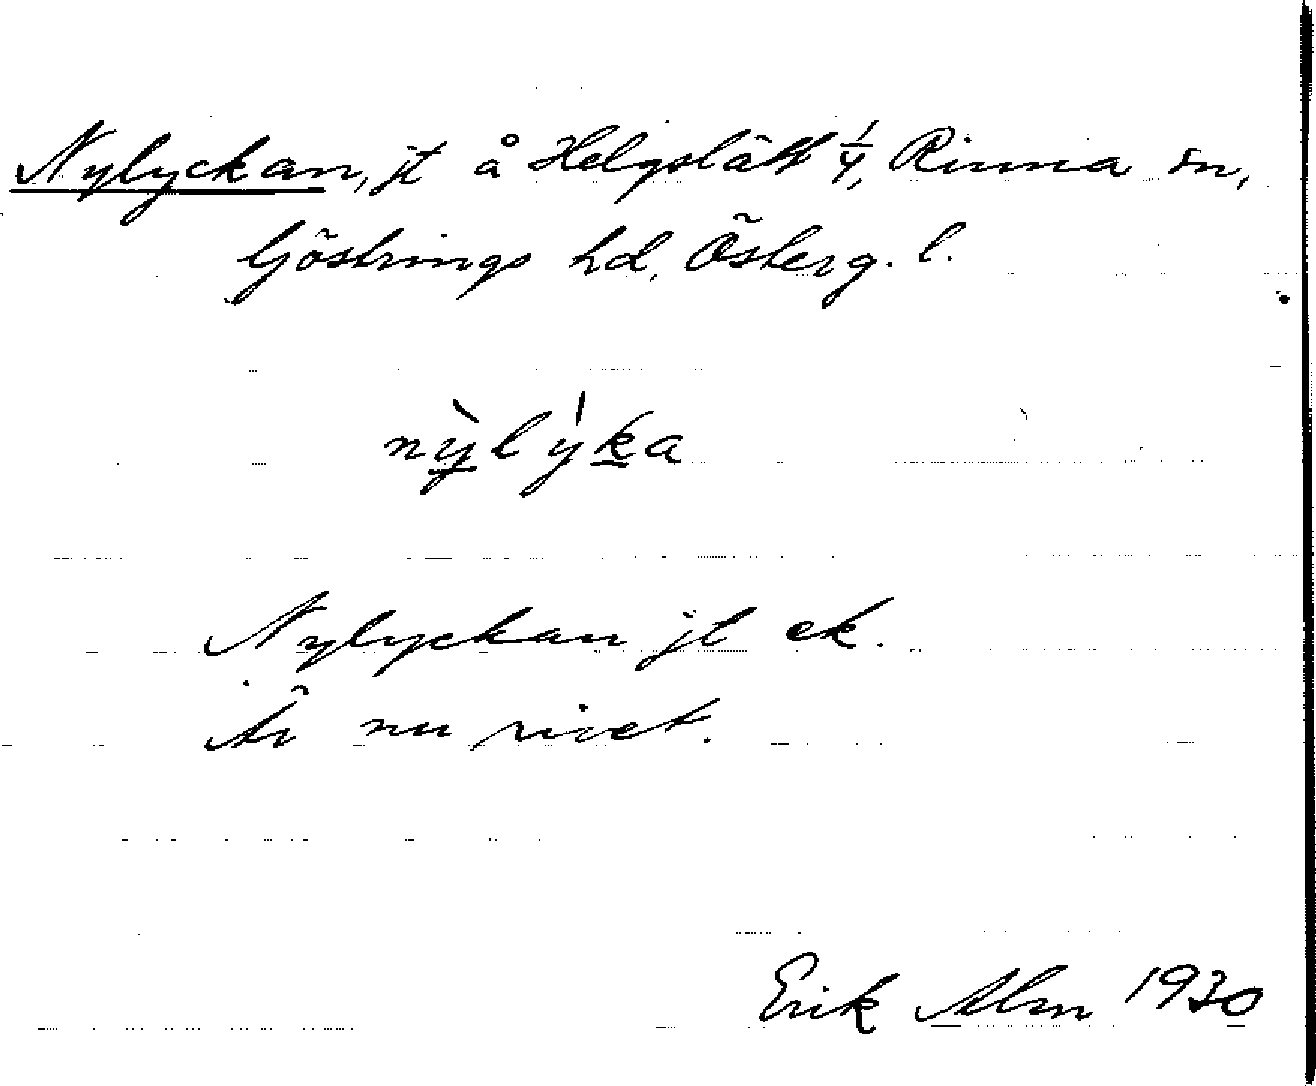 Nylyckan, jt å Helgslätt 1/4, Rinna sn,
Göstrings hd, Österg. l.
nỳlýka
Nylyckan jt ek.
Är nu rivet.
Erik Alm 1930